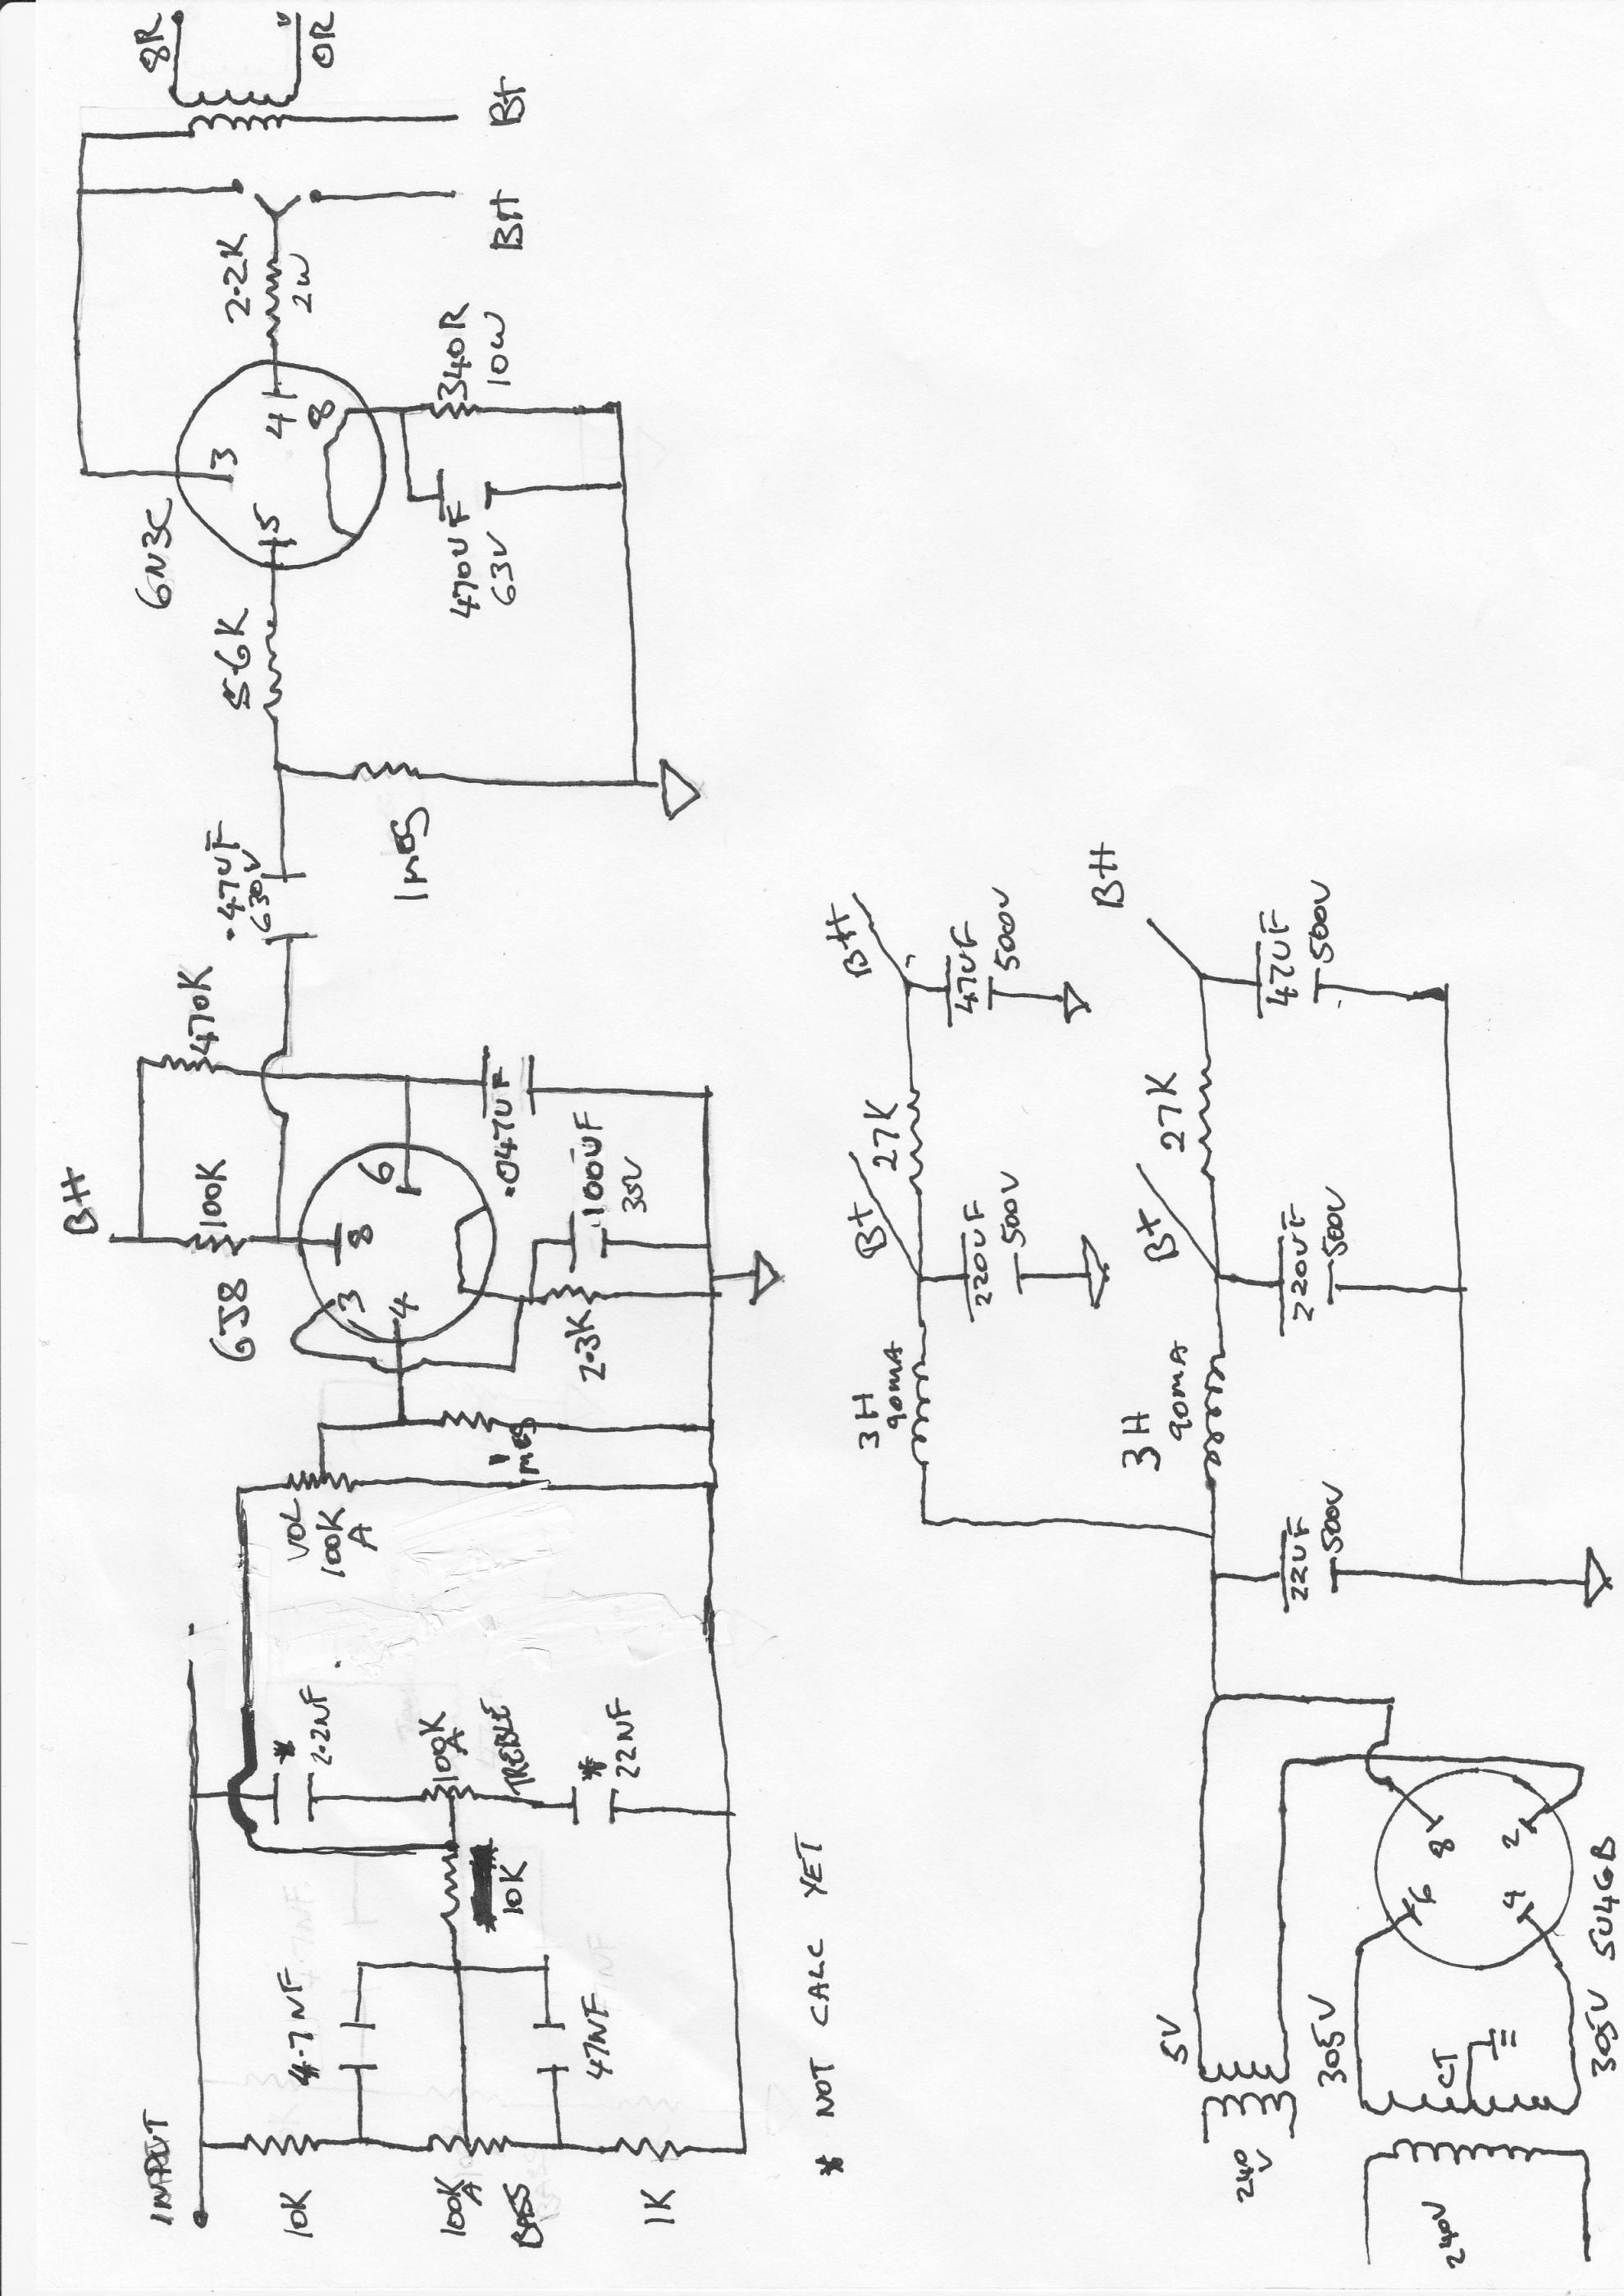 INPUT
10K
100K
A
BASS
1K
4.7NF
47NF
10K
*
2.2NF
100K
A
TREBLE
*
22NF
VOL
100K
A
1MEG
6J8
3
4
8
6
2.3K
B++
100K
470K
.047UF
100UF
35V
.47UF
630V
1MEG
5.6K
6N3C
5
3
4
8
470UF
63V
340R
10W
2.2K
2W
B++
B+
8R
0R
* NOT CALC YET
240V
240V
5V
305V
CT
305V
5U4GB
6
4
8
2
22UF
500V
3H
90mA
3H
90mA
B+
220UF
500V
27K
B++
47UF
500V
B+
220UF
500V
27K
B++
47UF
500V